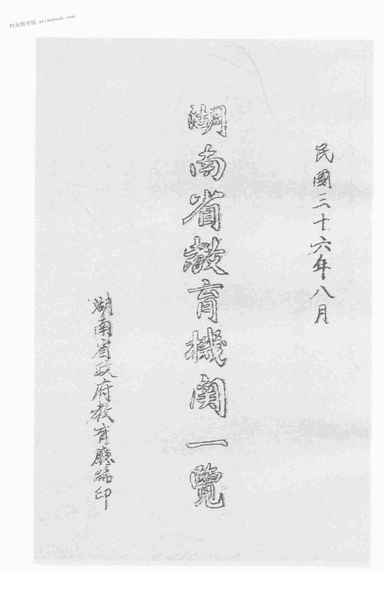 民國三十六年八月
湖南省教育機関一覽
湖南省政府教育廳編印